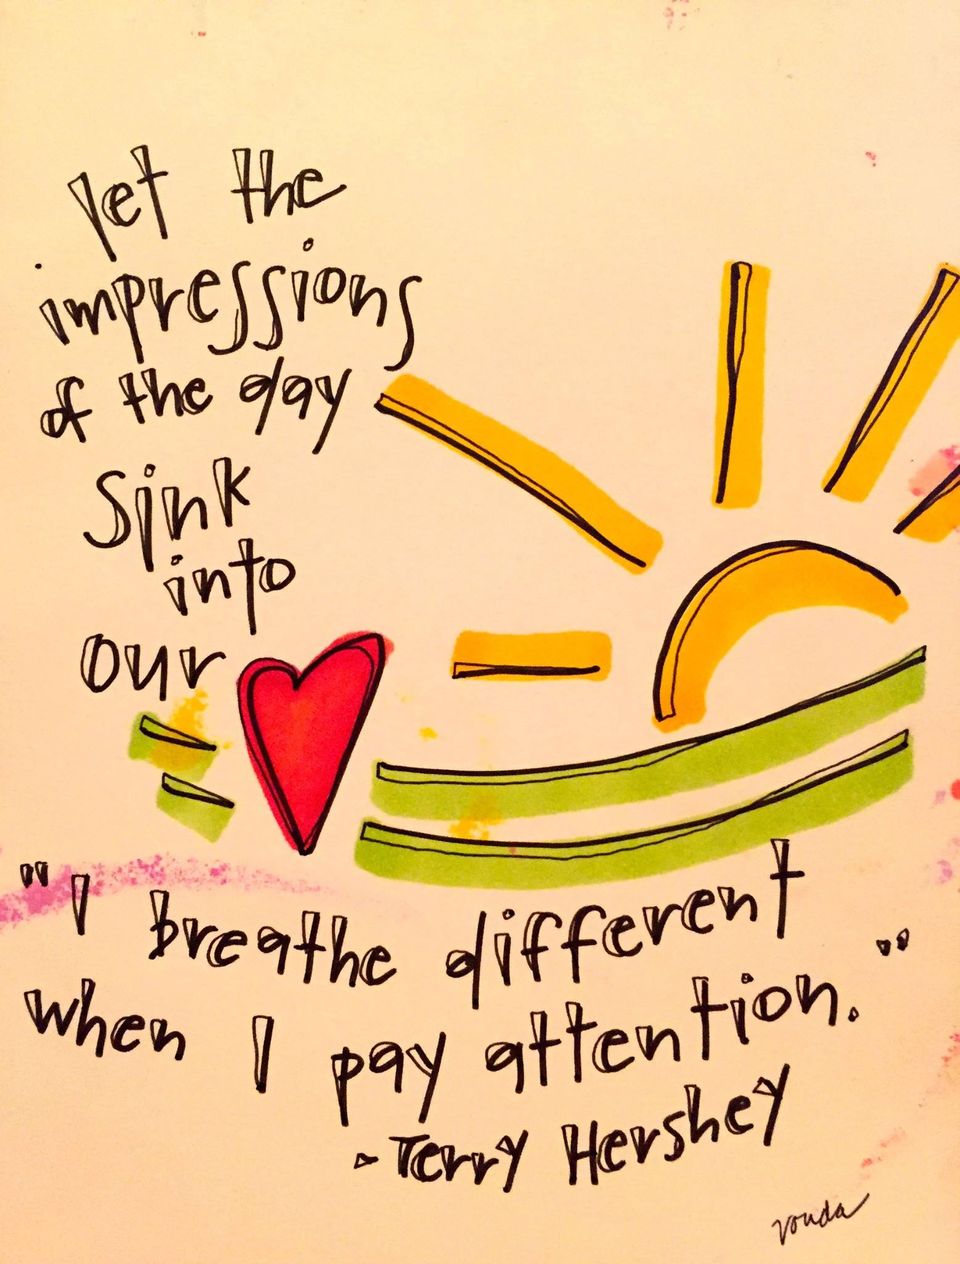 let the
impressions
of the day
sink
into
our
"I breathe different
when I pay attention."
- Terry Hershey
vonda